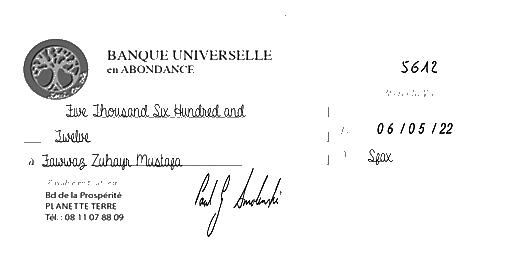 BANQUE UNIVERSELLE
en ABONDANCE
5612
Five Thousand Six Hundred and
Twelve
06/05/22
à Fawwaz Zuhayr Mustafa
Sfax
Bd de la Prospérité
PLANETTE TERRE
Tél. : 08 11 07 88 09
Paul J Smolenski